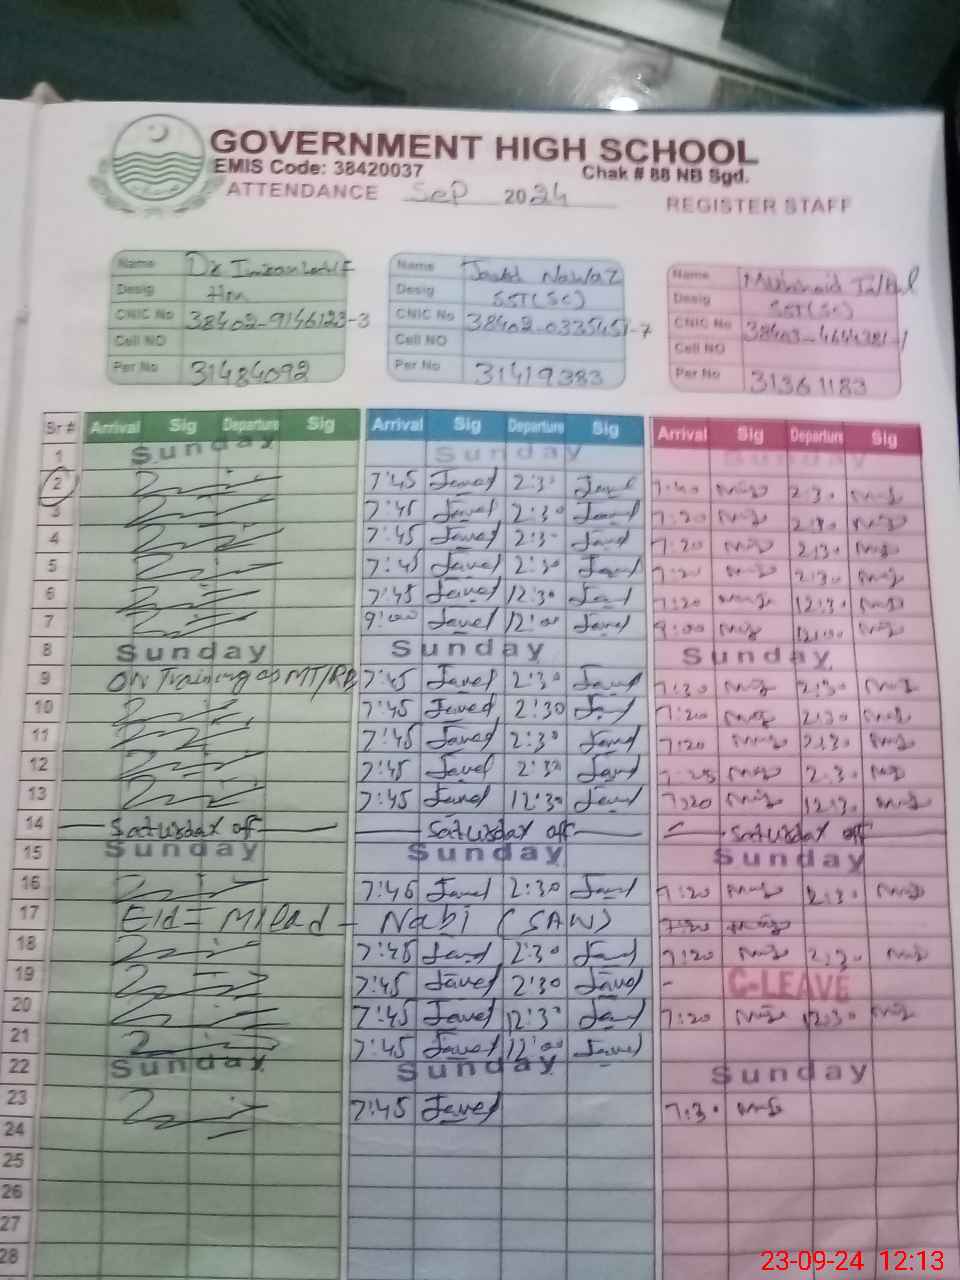 GOVERNMENT HIGH SCHOOL
EMIS Code: 38420037 Chak # 88 NB Sgd.
ATTENDANCE Sep 2024 REGISTER STAFF
Name Dr Imran Name Javed Nawaz Name
Desig Hm Desig SST(Sc) Desig SST(Sc)
CNIC No 38402-9146123-3 CNIC No 38402-0335451-7 CNIC No
Cell NO Cell NO Cell NO
Per No 31484092 Per No 31419383 Per No 31361183
Sr # Arrival Sig Departure Sig Arrival Sig Departure Sig Arrival Sig Departure Sig
1 Sunday Sunday Sunday
2 7:45 Javed 2:30 Javed 7:40 2:30
3 7:45 Javed 2:30 Javed 7:20 2:30
4 7:45 Javed 2:30 Javed 7:20 2:30
5 7:45 Javed 2:30 Javed 7:20 2:30
6 7:45 Javed 12:30 Javed 7:20 12:30
7 9:00 Javed 12:00 Javed 9:00 12:00
8 Sunday Sunday Sunday
9 ON Training as MT/ 7:45 Javed 2:30 Javed 7:30 2:30
10 7:45 Javed 2:30 Javed 7:20 2:30
11 7:45 Javed 2:30 Javed 7:20 2:30
12 7:45 Javed 2:30 Javed 7:25 2:30
13 7:45 Javed 12:30 Javed 7:20 12:30
14 Saturday off Saturday off Saturday off
15 Sunday Sunday Sunday
16 7:45 Javed 2:30 Javed 7:20 2:30
17 Eid = Milad - Nabi (SAW) 7:20
18 7:45 Javed 2:30 Javed 7:20 2:30
19 7:45 Javed 2:30 Javed - C-LEAVE
20 7:45 Javed 12:30 Javed 7:20 12:30
21 7:45 Javed 12:00 Javed
22 Sunday Sunday Sunday
23 7:45 Javed 7:30
24
25
26
27
28
23-09-24 12:13